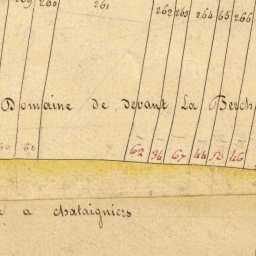 260 261 262 263 264 65 266
Domaine de devant La Berch
62 96 67 44 12 46
a chataigniers